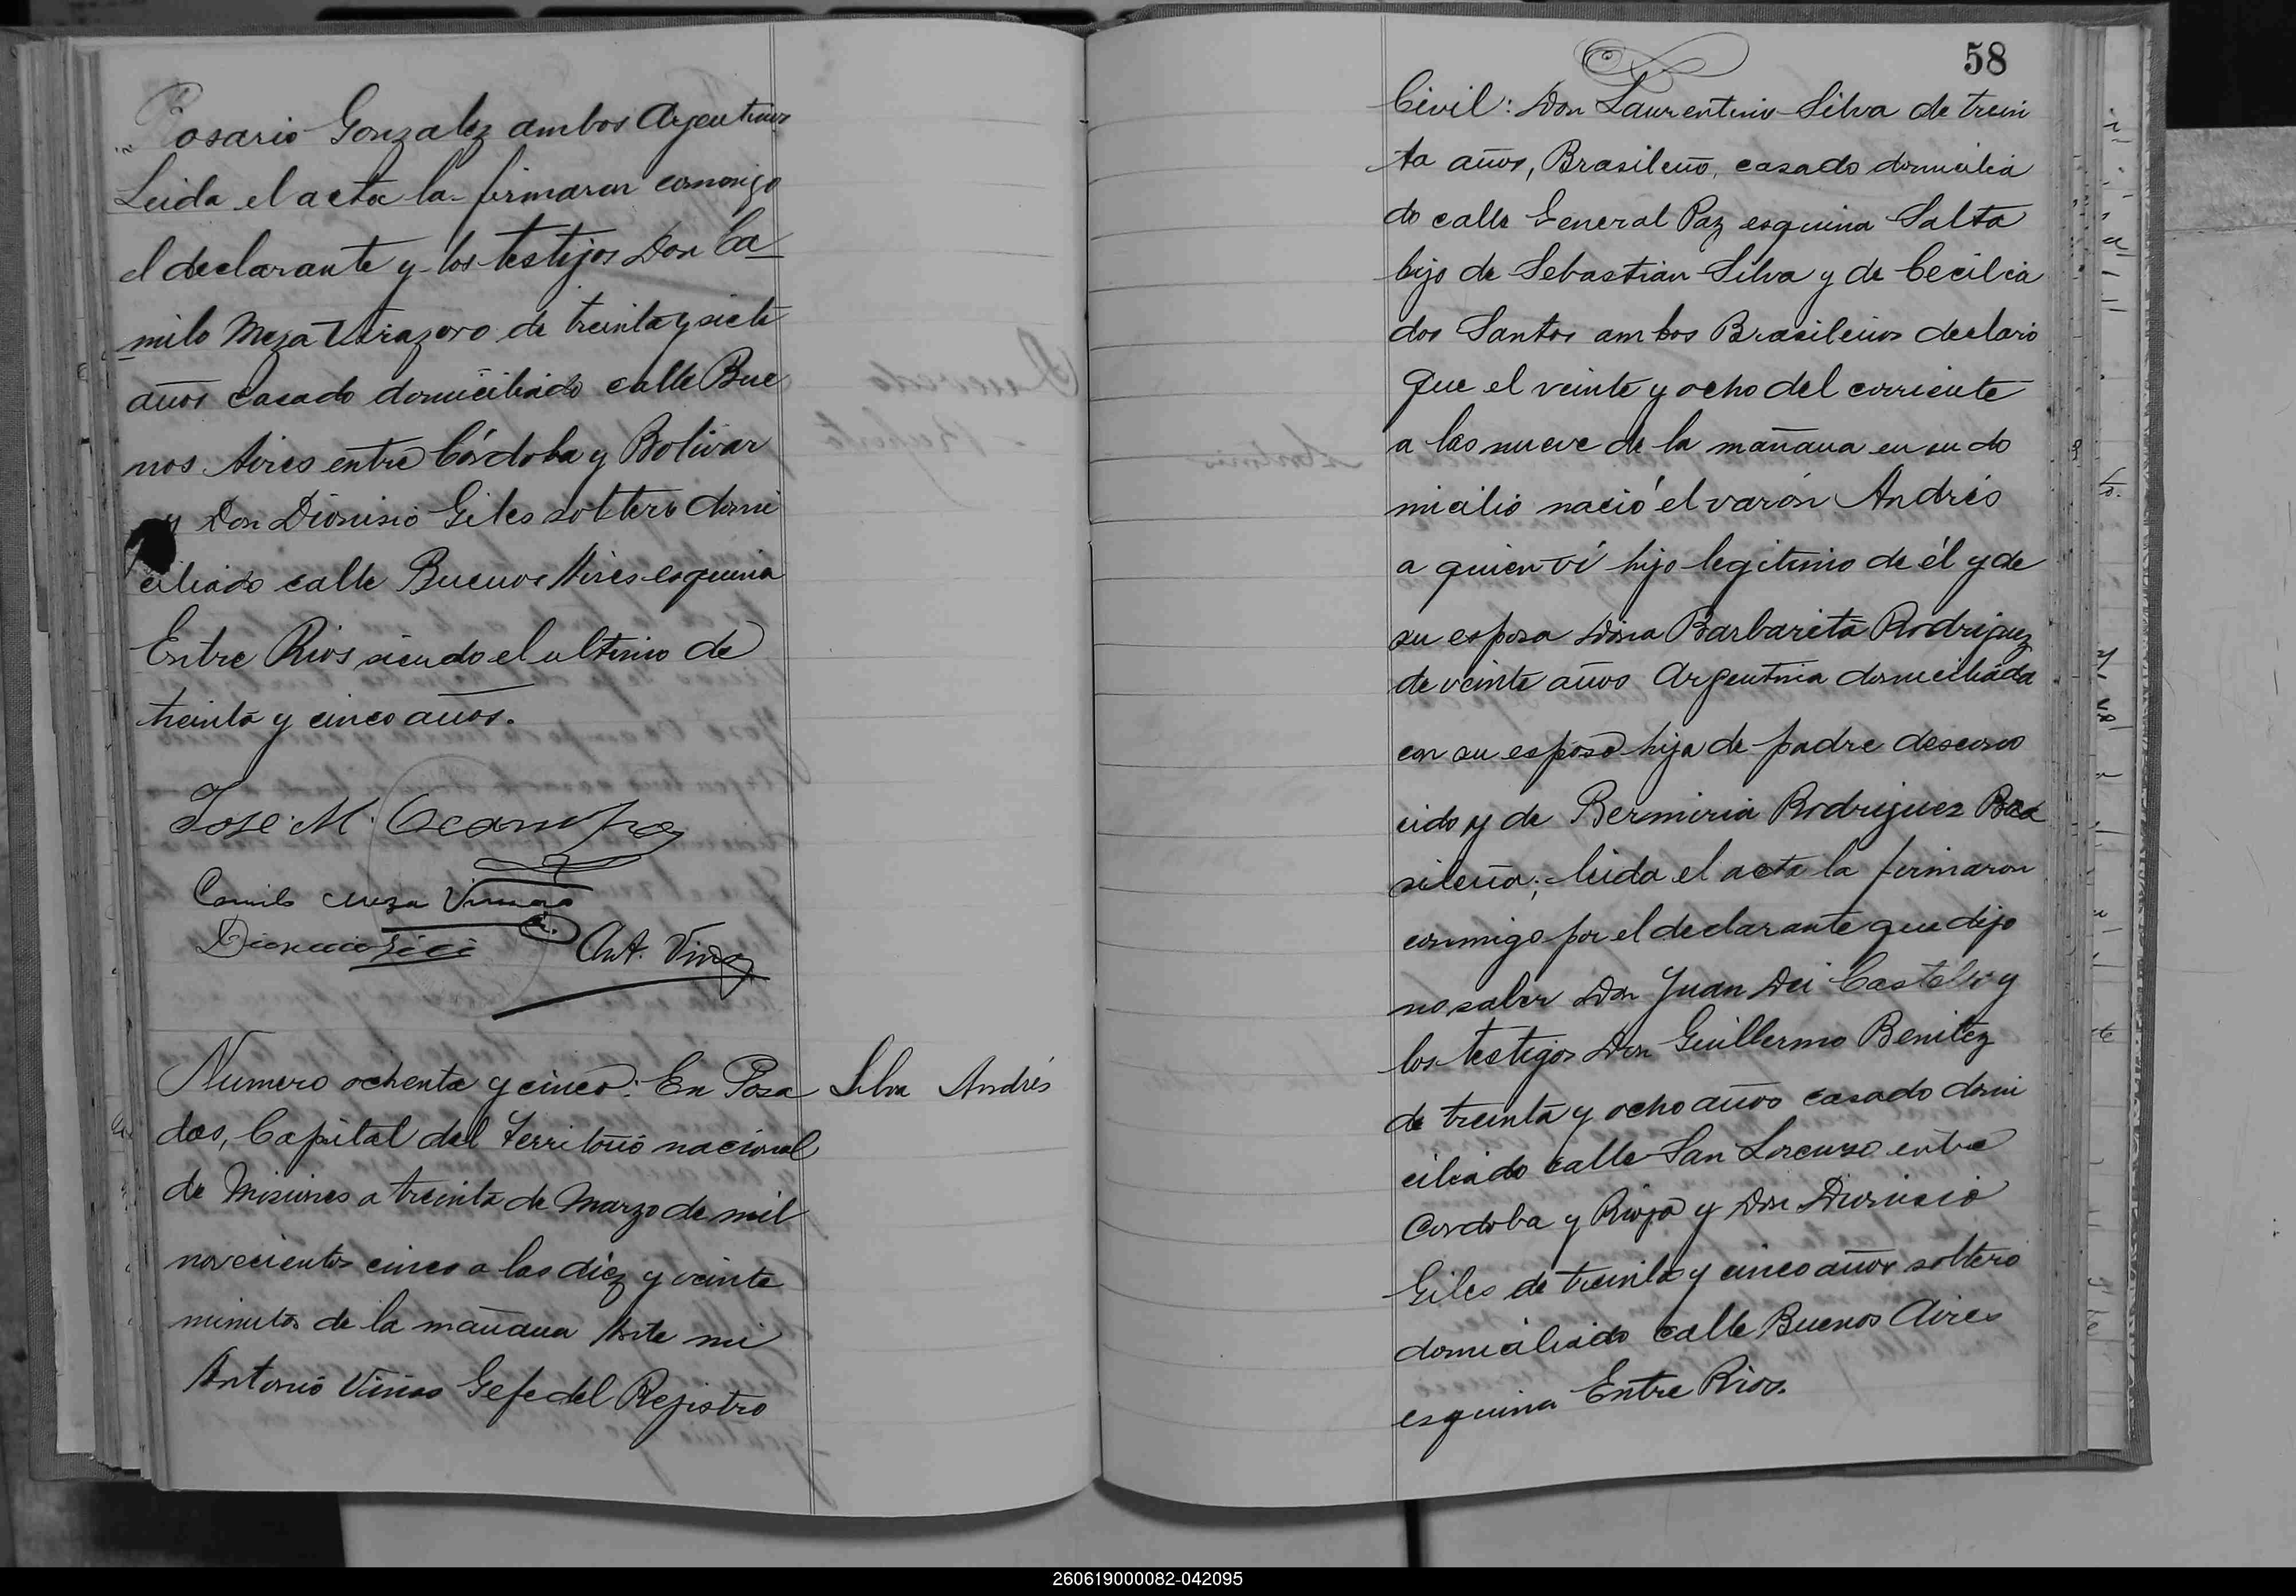 Rosario Gonzalez ambos Argentinos
Leida el acta la firmaron conmigo
el declarante y los testigos Don Ca
milo Meza Virazoro de treinta y siete
años casado domiciliado calle Bue
nos Aires entre Córdoba y Bolivar
y Don Dionisio Giles soltero domi
ciliado calle Buenos Aires esquina
Entre Rios siendo el ultimo de
treinta y cinco años.
José M. Ocampo
Camilo Meza
Ant. Viñas
Numero ochenta y cinco: En Posa
das, Capital del Territorio nacional
de Misiones a treinta de Marzo de mil
novecientos cinco a las diez y veinte
minutos de la mañana Ante mi
Antonio Viñas Gefe del Rejistro
Silva Andrés
58
Civil: Don Laurentino Silva de trein
ta años, Brasileño, casado domicilia
do calle General Paz esquina Salta
hijo de Sebastian Silva y de Cecilia
dos Santos ambos Brasileños declaró
que el veinte y ocho del corriente
a las nueve de la mañana en su do
micilio nació el varón Andrés
a quien ví hijo legitimo de él y de
su esposa Doña Barbarita Rodriguez
de veinte años Argentina domiciliada
con su esposo hija de padre descono
cido y de Rodriguez Bra
sileña; leida el acta la firmaron
conmigo por el declarante que dijo
no saber Don Juan Dei Castelli y
los testigos Don Guillermo Benitez
de treinta y ocho años casado domi
ciliado calle San Lorenzo entre
Cordoba y Rioja y Don Dionisio
Giles de treinta y cinco años soltero
domiciliado calle Buenos Aires
esquina Entre Rios.
260619000082-042095